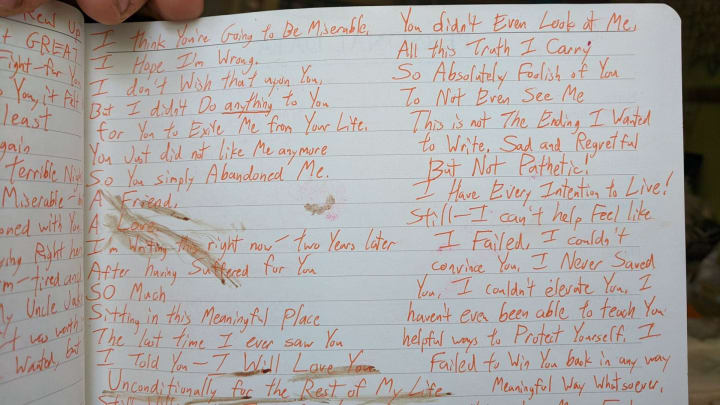 Kew Up
t GREAT
Fight for Yo
You, it Felt
least
gain
terrible Nigh
Miserable
oned with You
ying Right here
m-tired and
My Uncle Jack
t was worth
Wanted, but
I think You're Going to Be Miserable.
I Hope I'm Wrong.
I don't Wish that upon You,
But I didn't Do anything to You
for You to Exile Me from Your Life.
You Just did not like Me anymore
So You simply Abandoned Me.
A Friend,
A Love
I'm Writing this right now - two Years later
After having Suffered for You
SO Much
Sitting in this Meaningful Place
The last time I ever saw You
I Told You - I Will Love You
Unconditionally for the Rest of My Life.
Still
You didn't Even Look at Me,
All this Truth I Carry
So Absolutely Foolish of You
To Not Even See Me
This is not The Ending I Wanted
to Write, Sad and Regretful
But Not Pathetic!
I Have Every Intention to Live!
Still - I can't help Feel like
I Failed, I couldn't
convince You, I Never Saved
You, I couldn't elevate You, I
haven't even been able to teach You
helpful ways to Protect Yourself. I
Failed to Win You back in any way
Meaningful Way Whatsoever,